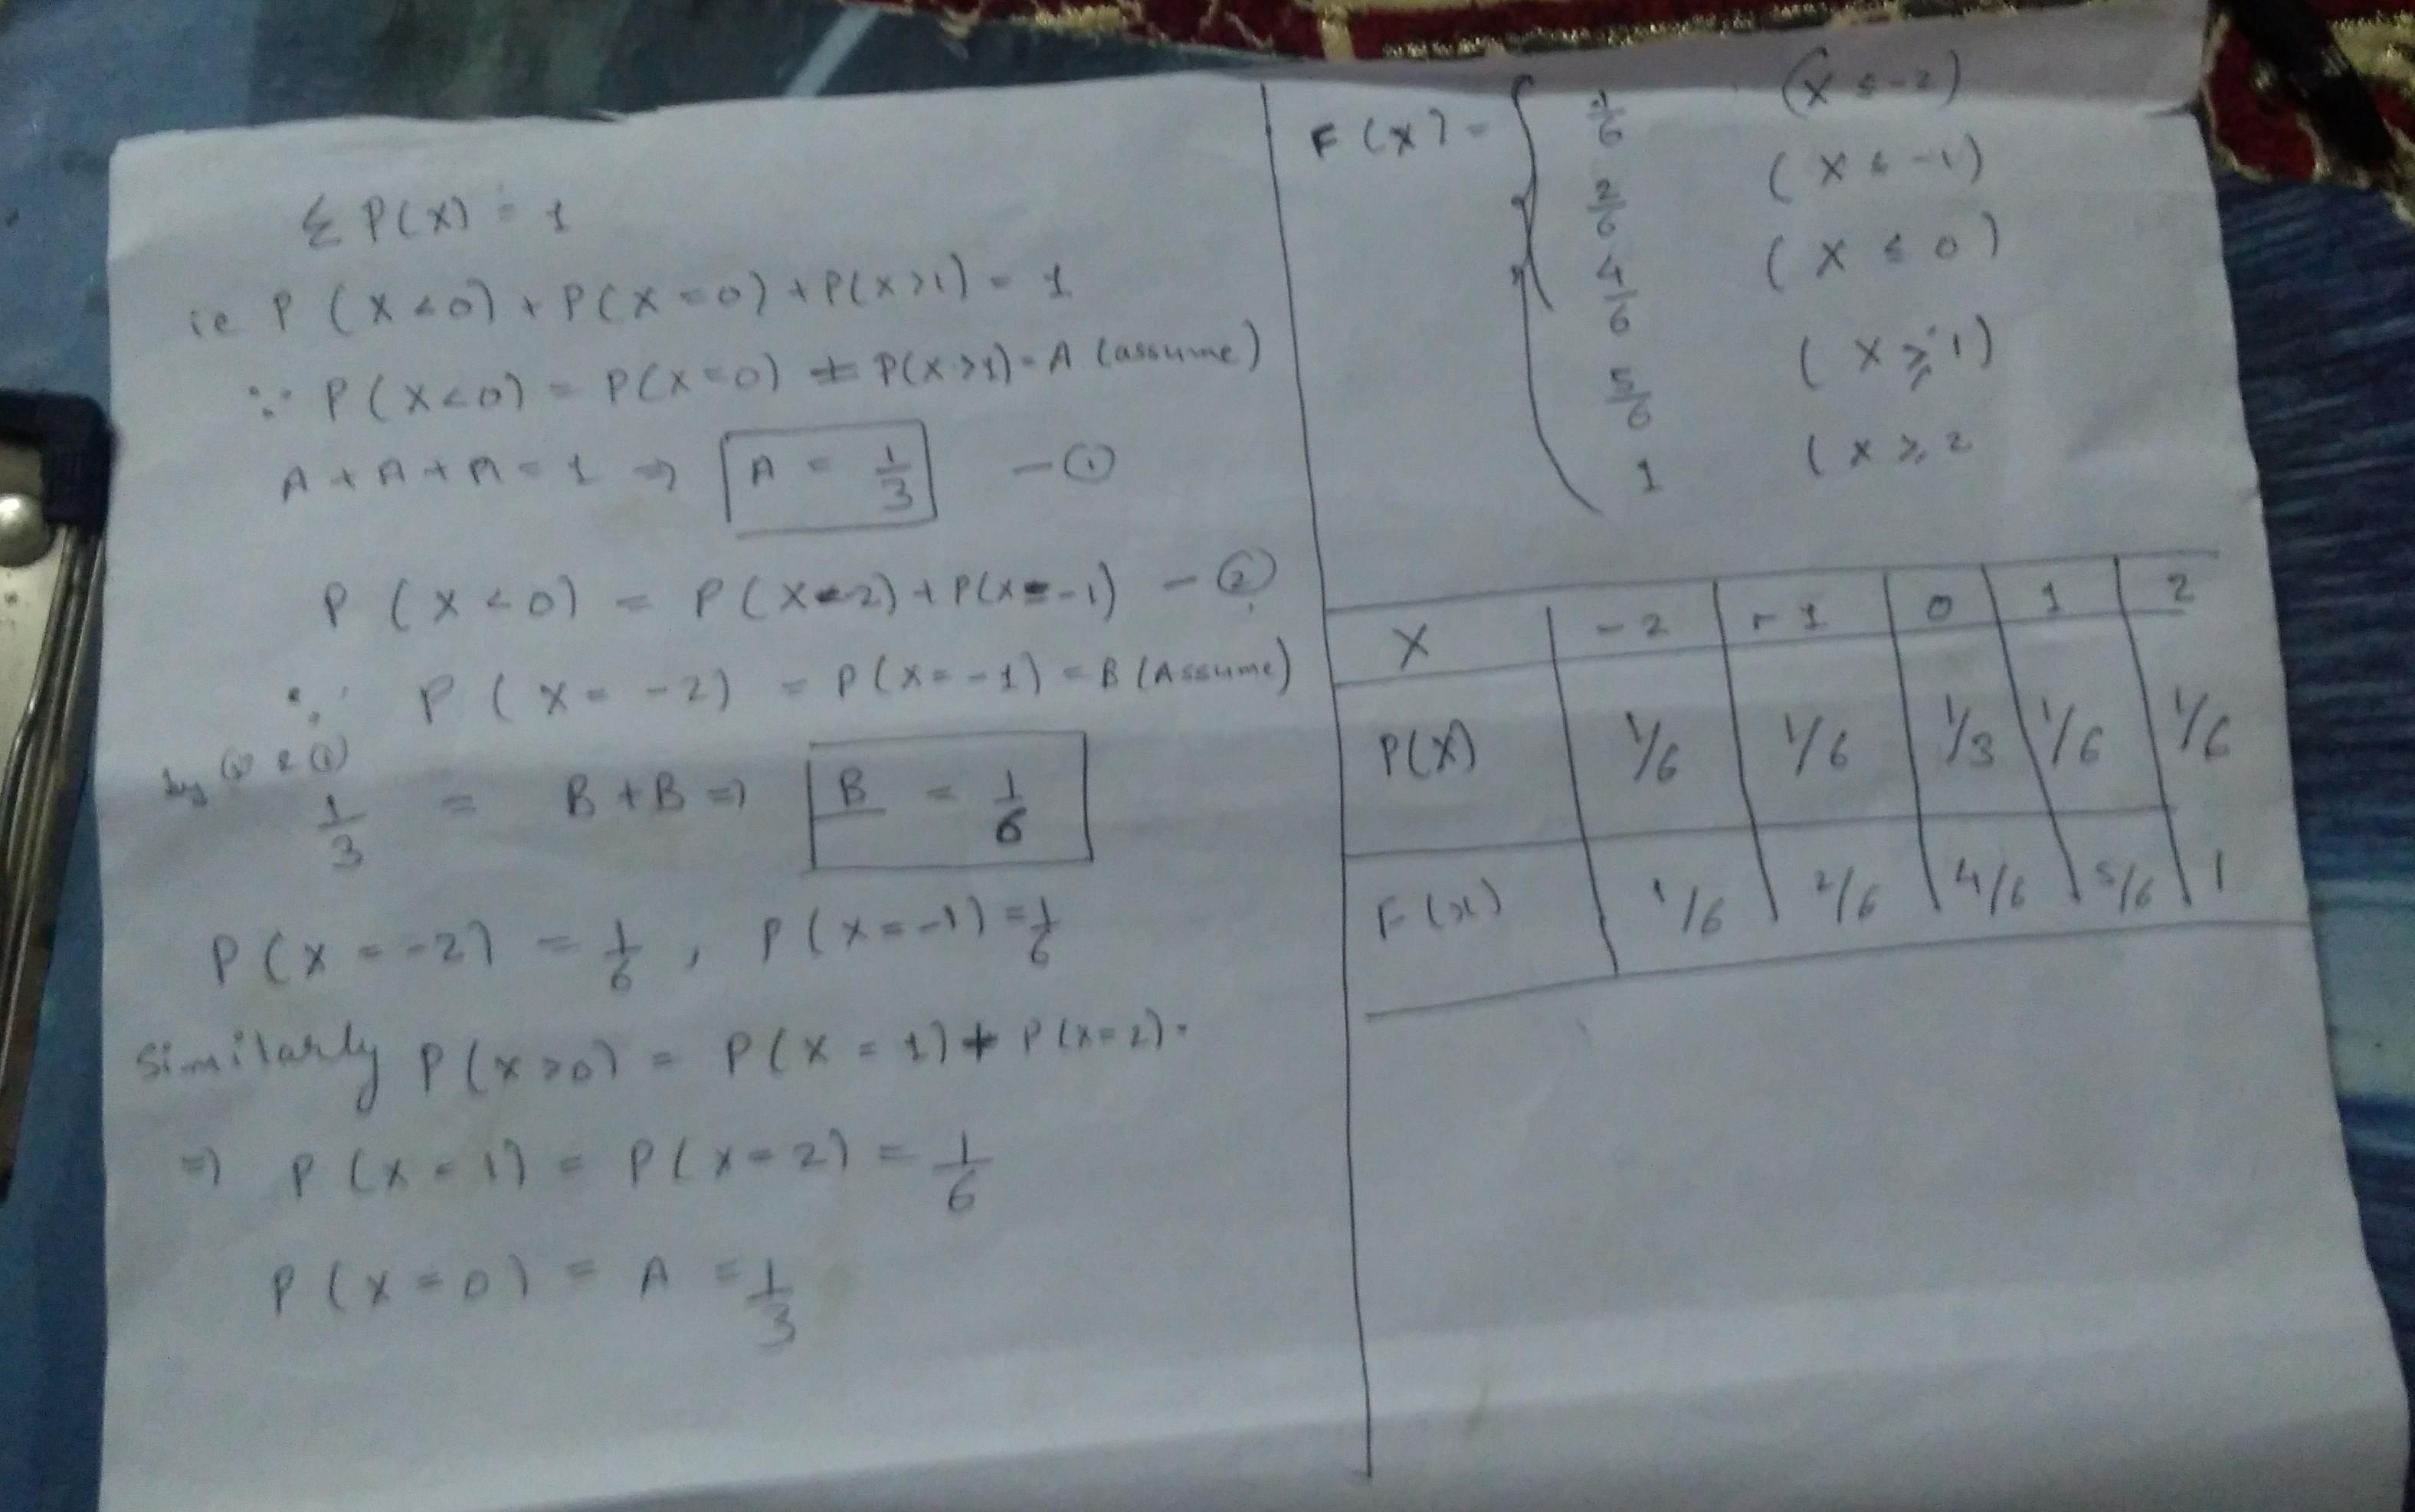 Σ P(X) = 1
ie P (X < 0) + P(X = 0) + P(X > 1) = 1
∵ P(X < 0) = P(X = 0) = P(X > 1) = A (assume)
A + A + A = 1 ⇒ A = 1/3 — ①
P (X < 0) = P(X = -2) + P(X = -1) — ②
∵ P (X = -2) = P(X = -1) = B (Assume)
by
1/3 = B + B ⇒ B = 1/6
P(X = -2) = 1/6 , P(X = -1) = 1/6
Similarly P(X > 0) = P(X = 1) + P(X = 2).
⇒ P(X = 1) = P(X = 2) = 1/6
P(X = 0) = A = 1/3
F (X) =
1/6 (X ≤ -2)
2/6 (X ≤ -1)
4/6 (X ≤ 0)
5/6 (X ⩾ 1)
1 (X ⩾ 2
X -2 -1 0 1 2
P(X) 1/6 1/6 1/3 1/6 1/6
F(x) 1/6 2/6 4/6 5/6 1